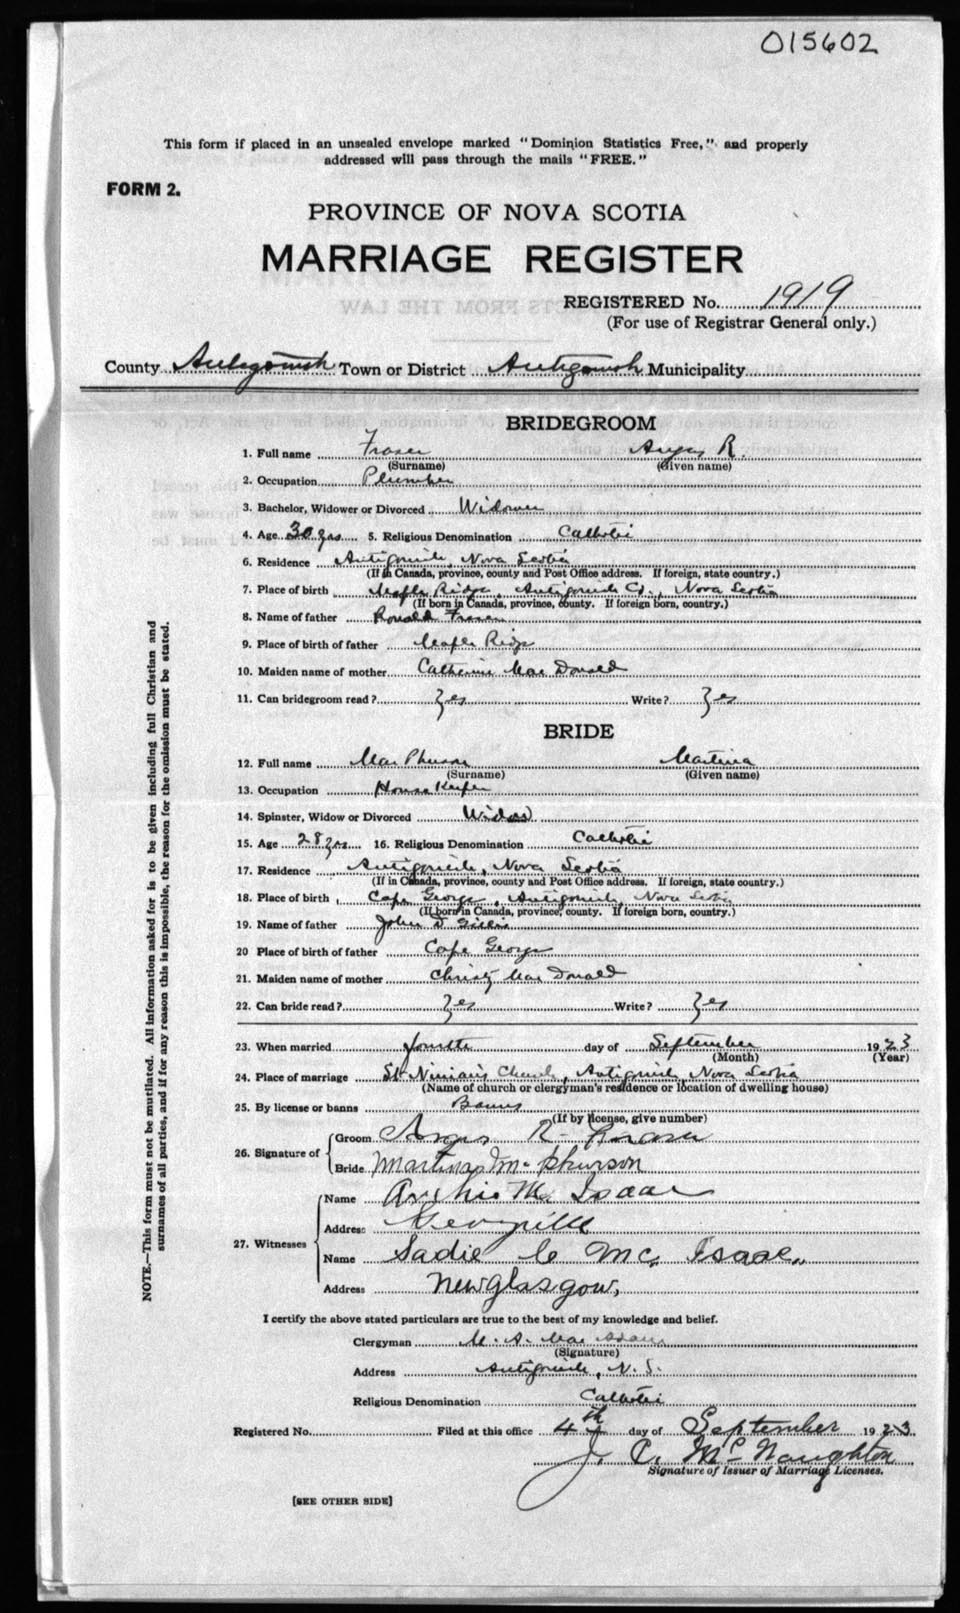 015602
This form if placed in an unsealed envelope marked "Dominion Statistics Free," and properly
addressed will pass through the mails "FREE."
FORM 2.
PROVINCE OF NOVA SCOTIA
MARRIAGE REGISTER
REGISTERED No. 1919
(For use of Registrar General only.)
County Antigonish Town or District Antigonish Municipality
BRIDEGROOM
1. Full name Fraser Angus R.
(Surname) (Given name)
2. Occupation Plumber
3. Bachelor, Widower or Divorced Widower
4. Age 30 yrs 5. Religious Denomination Catholic
6. Residence Antigonish, Nova Scotia
(If in Canada, province, county and Post Office address. If foreign, state country.)
7. Place of birth Maple Ridge, Antigonish Co., Nova Scotia
(If born in Canada, province, county. If foreign born, country.)
8. Name of father Ronald Fraser
9. Place of birth of father Maple Ridge
10. Maiden name of mother Catherine MacDonald
11. Can bridegroom read? Yes Write? Yes
BRIDE
12. Full name MacPherson Martina
(Surname) (Given name)
13. Occupation House Keeper
14. Spinster, Widow or Divorced Widow
15. Age 28 yrs 16. Religious Denomination Catholic
17. Residence Antigonish, Nova Scotia
(If in Canada, province, county and Post Office address. If foreign, state country.)
18. Place of birth Cape George, Antigonish, Nova Scotia
(If born in Canada, province, county. If foreign born, country.)
19. Name of father John D Gillis
20 Place of birth of father Cape George
21. Maiden name of mother Christy MacDonald
22. Can bride read? Yes Write? Yes
23. When married fourth day of September 1923
(Month) (Year)
24. Place of marriage St. Ninian's Church, Antigonish Nova Scotia
(Name of church or clergyman's residence or location of dwelling house)
25. By license or banns Banns
(If by license, give number)
26. Signature of Groom Angus R. Fraser
Bride Martina McPherson
27. Witnesses Name Archie Mc Isaac
Address Georgeville
Name Sadie C Mc Isaac
Address New Glasgow,
I certify the above stated particulars are true to the best of my knowledge and belief.
Clergyman M. A. MacAdam
(Signature)
Address Antigonish, N. S.
Religious Denomination Catholic
Registered No. Filed at this office 4th day of September 1923.
J. C. McNaughton
Signature of Issuer of Marriage Licenses.
[SEE OTHER SIDE]
NOTE.—This form must not be mutilated. All information asked for is to be given including full Christian and
surnames of all parties, and if for any reason this is impossible, the reason for the omission must be stated.